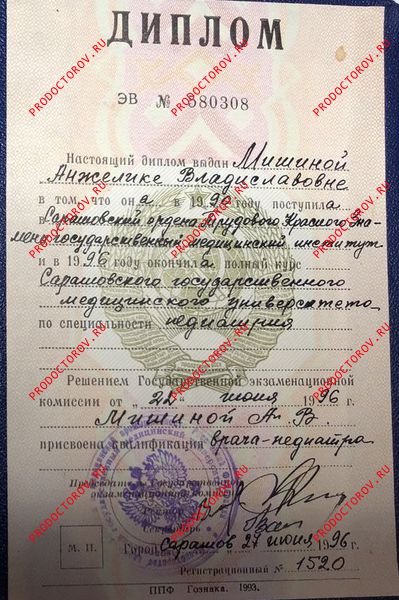 ДИПЛОМ
ЭВ № 580308
Настоящий диплом выдан Мишиной
Анжелике Владиславовне
в том что она в 1990 году поступила
в Саратовский ордена Трудового Красного Зна-
мени государственный медицинский институт
и в 1996 году окончила полный курс
Саратовского государственного
медицинского университета
по специальности педиатрия
Решением Государственной экзаменационной
комиссии от июня 1996 г.
Мишиной А. В.
присвоена квалификация врача-педиатра
Председатель Государственной
экзаменационной комиссии
Ректор
Секретарь
М. П.
Город Саратов 27 июня 1996 г.
Регистрационный № 1520
ППФ Гознака. 1993.
PRODOCTOROV.RU